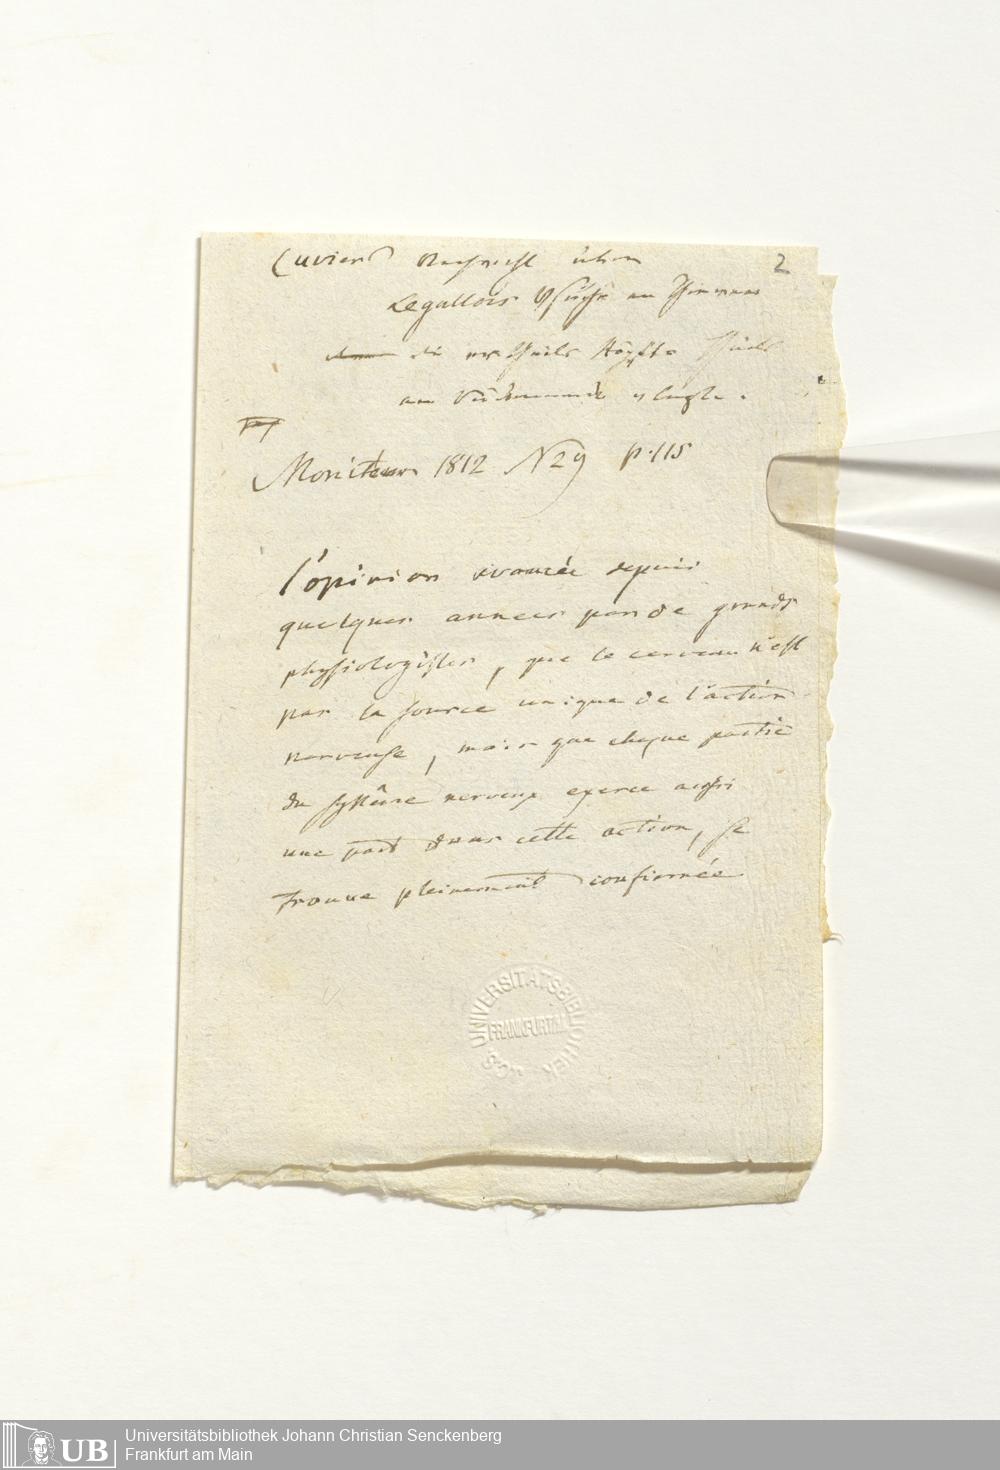 Cuviers Nachricht über
2
Legallois Vsuche an Thieren
die theils theils
am Rückenmark
Moniteur 1812 N 29 p. 115
l'opinion avancée depuis
quelques années par de grands
physiologistes, que le cerveau n'est
pas la source unique de l'action
nerveuse, mais que chaque partie
du systême nerveux exerce aussi
une part dans cette action, se
trouve pleinement confirmée
UNIVERSITÄTSBIBLIOTHEK J.C.S.
FRANKFURT/M.
UB
Universitätsbibliothek Johann Christian Senckenberg
Frankfurt am Main